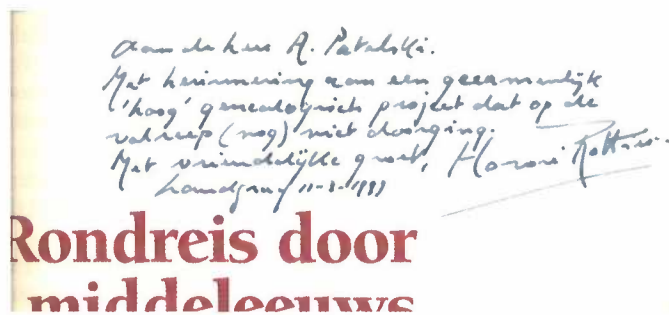 Aan de heer A. Patelski.
Met herinnering aan een gezamenlijk
'hoog' genealogisch project dat op de
valreep (nog) niet doorging.
Met vriendelijke groet, Honoré
11-3-1999
Rondreis door
middeleeuws